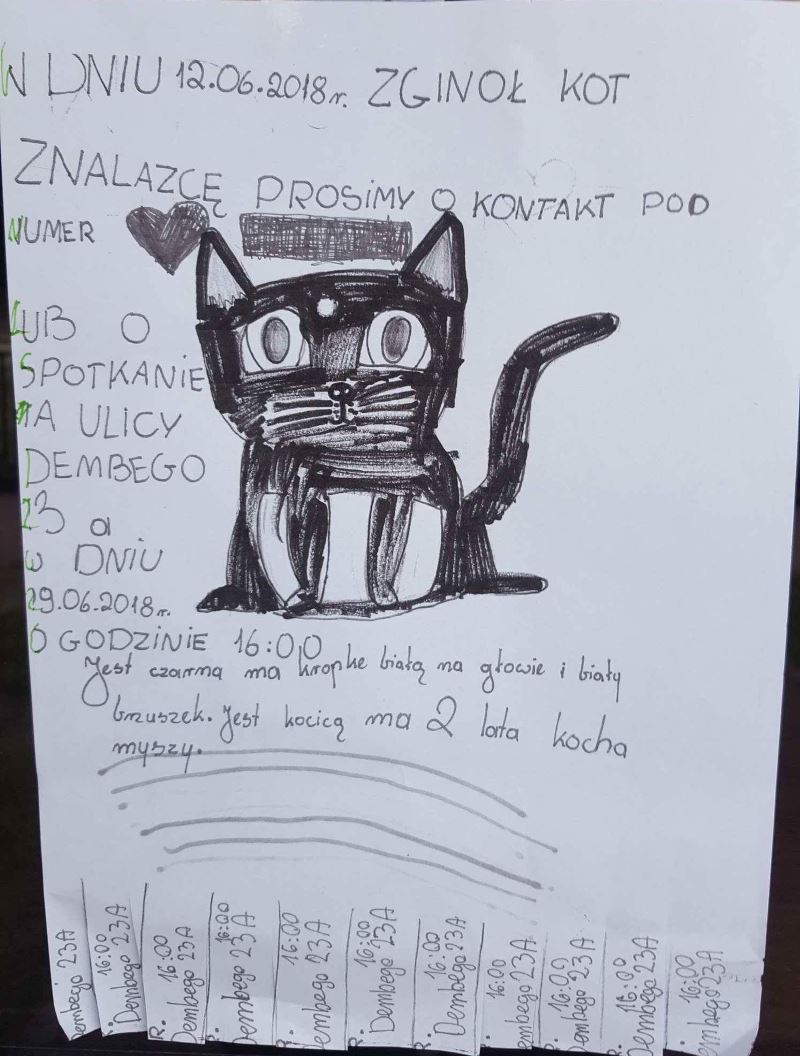 W DNIU 12.06.2018r. ZGINOŁ KOT
ZNALAZCĘ PROSIMY O KONTAKT POD
NUMER
LUB O
SPOTKANIE
NA ULICY
DEMBEGO
23 a
W DNIU
29.06.2018r.
O GODZINIE 16:00
Jest czarna ma kropke białą na głowie i biały
brzuszek. Jest kocicą ma 2 lata kocha
myszy.
Dembego 23A
16:00
Dembego 23A
R. 16:00
Dembego 23A
R. 16:00
Dembego 23A
R. 16:00
Dembego 23A
R. 16:00
Dembego 23A
R. 16:00
Dembego 23A
R. 16:00
Dembego 23A
R. 16:00
Dembego 23A
R. 16:00
Dembego 23A
R. 16:00
Dembego 23A